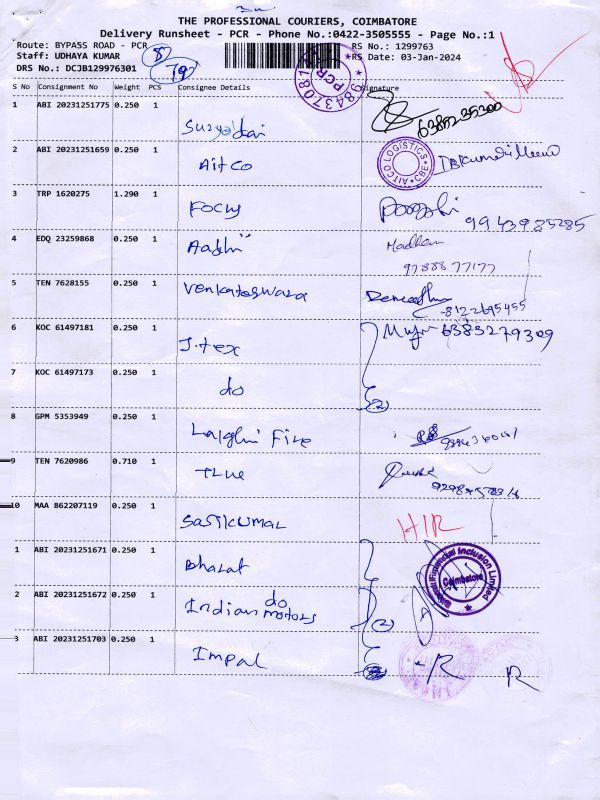 THE PROFESSIONAL COURIERS, COIMBATORE
Delivery Runsheet - PCR - Phone No.:0422-3505555 - Page No.:1
Route: BYPASS ROAD - PCR
RS No.: 1299763
Staff: UDHAYA KUMAR
RS Date: 03-Jan-2024
DRS No.: DCJB129976301
8
79
PCR
S No Consignment No Weight PCS Consignee Details Signature
1 ABI 20231251775 0.250 1
2 ABI 20231251659 0.250 1 Aitco
AITCO LOGISTICS CBE
3 TRP 1620275 1.290 1 Focus
9943985285
4 EDQ 23259868 0.250 1 Aadhi Madhan
9788877177
5 TEN 7628155 0.250 1 Venkateswara
8122695455
6 KOC 61497181 0.250 1 J.tex 6385279309
7 KOC 61497173 0.250 1 do
2
8 GPM 5353949 0.250 1 Fire
9 TEN 7620986 0.710 1 True
10 MAA 862207119 0.250 1 Sasikumar HIR
1 ABI 20231251671 0.250 1 Bharat
Financial Inclusion Limited
Coimbatore
2 ABI 20231251672 0.250 1 do
Indian motors
2
3 ABI 20231251703 0.250 1 Impal
R
R